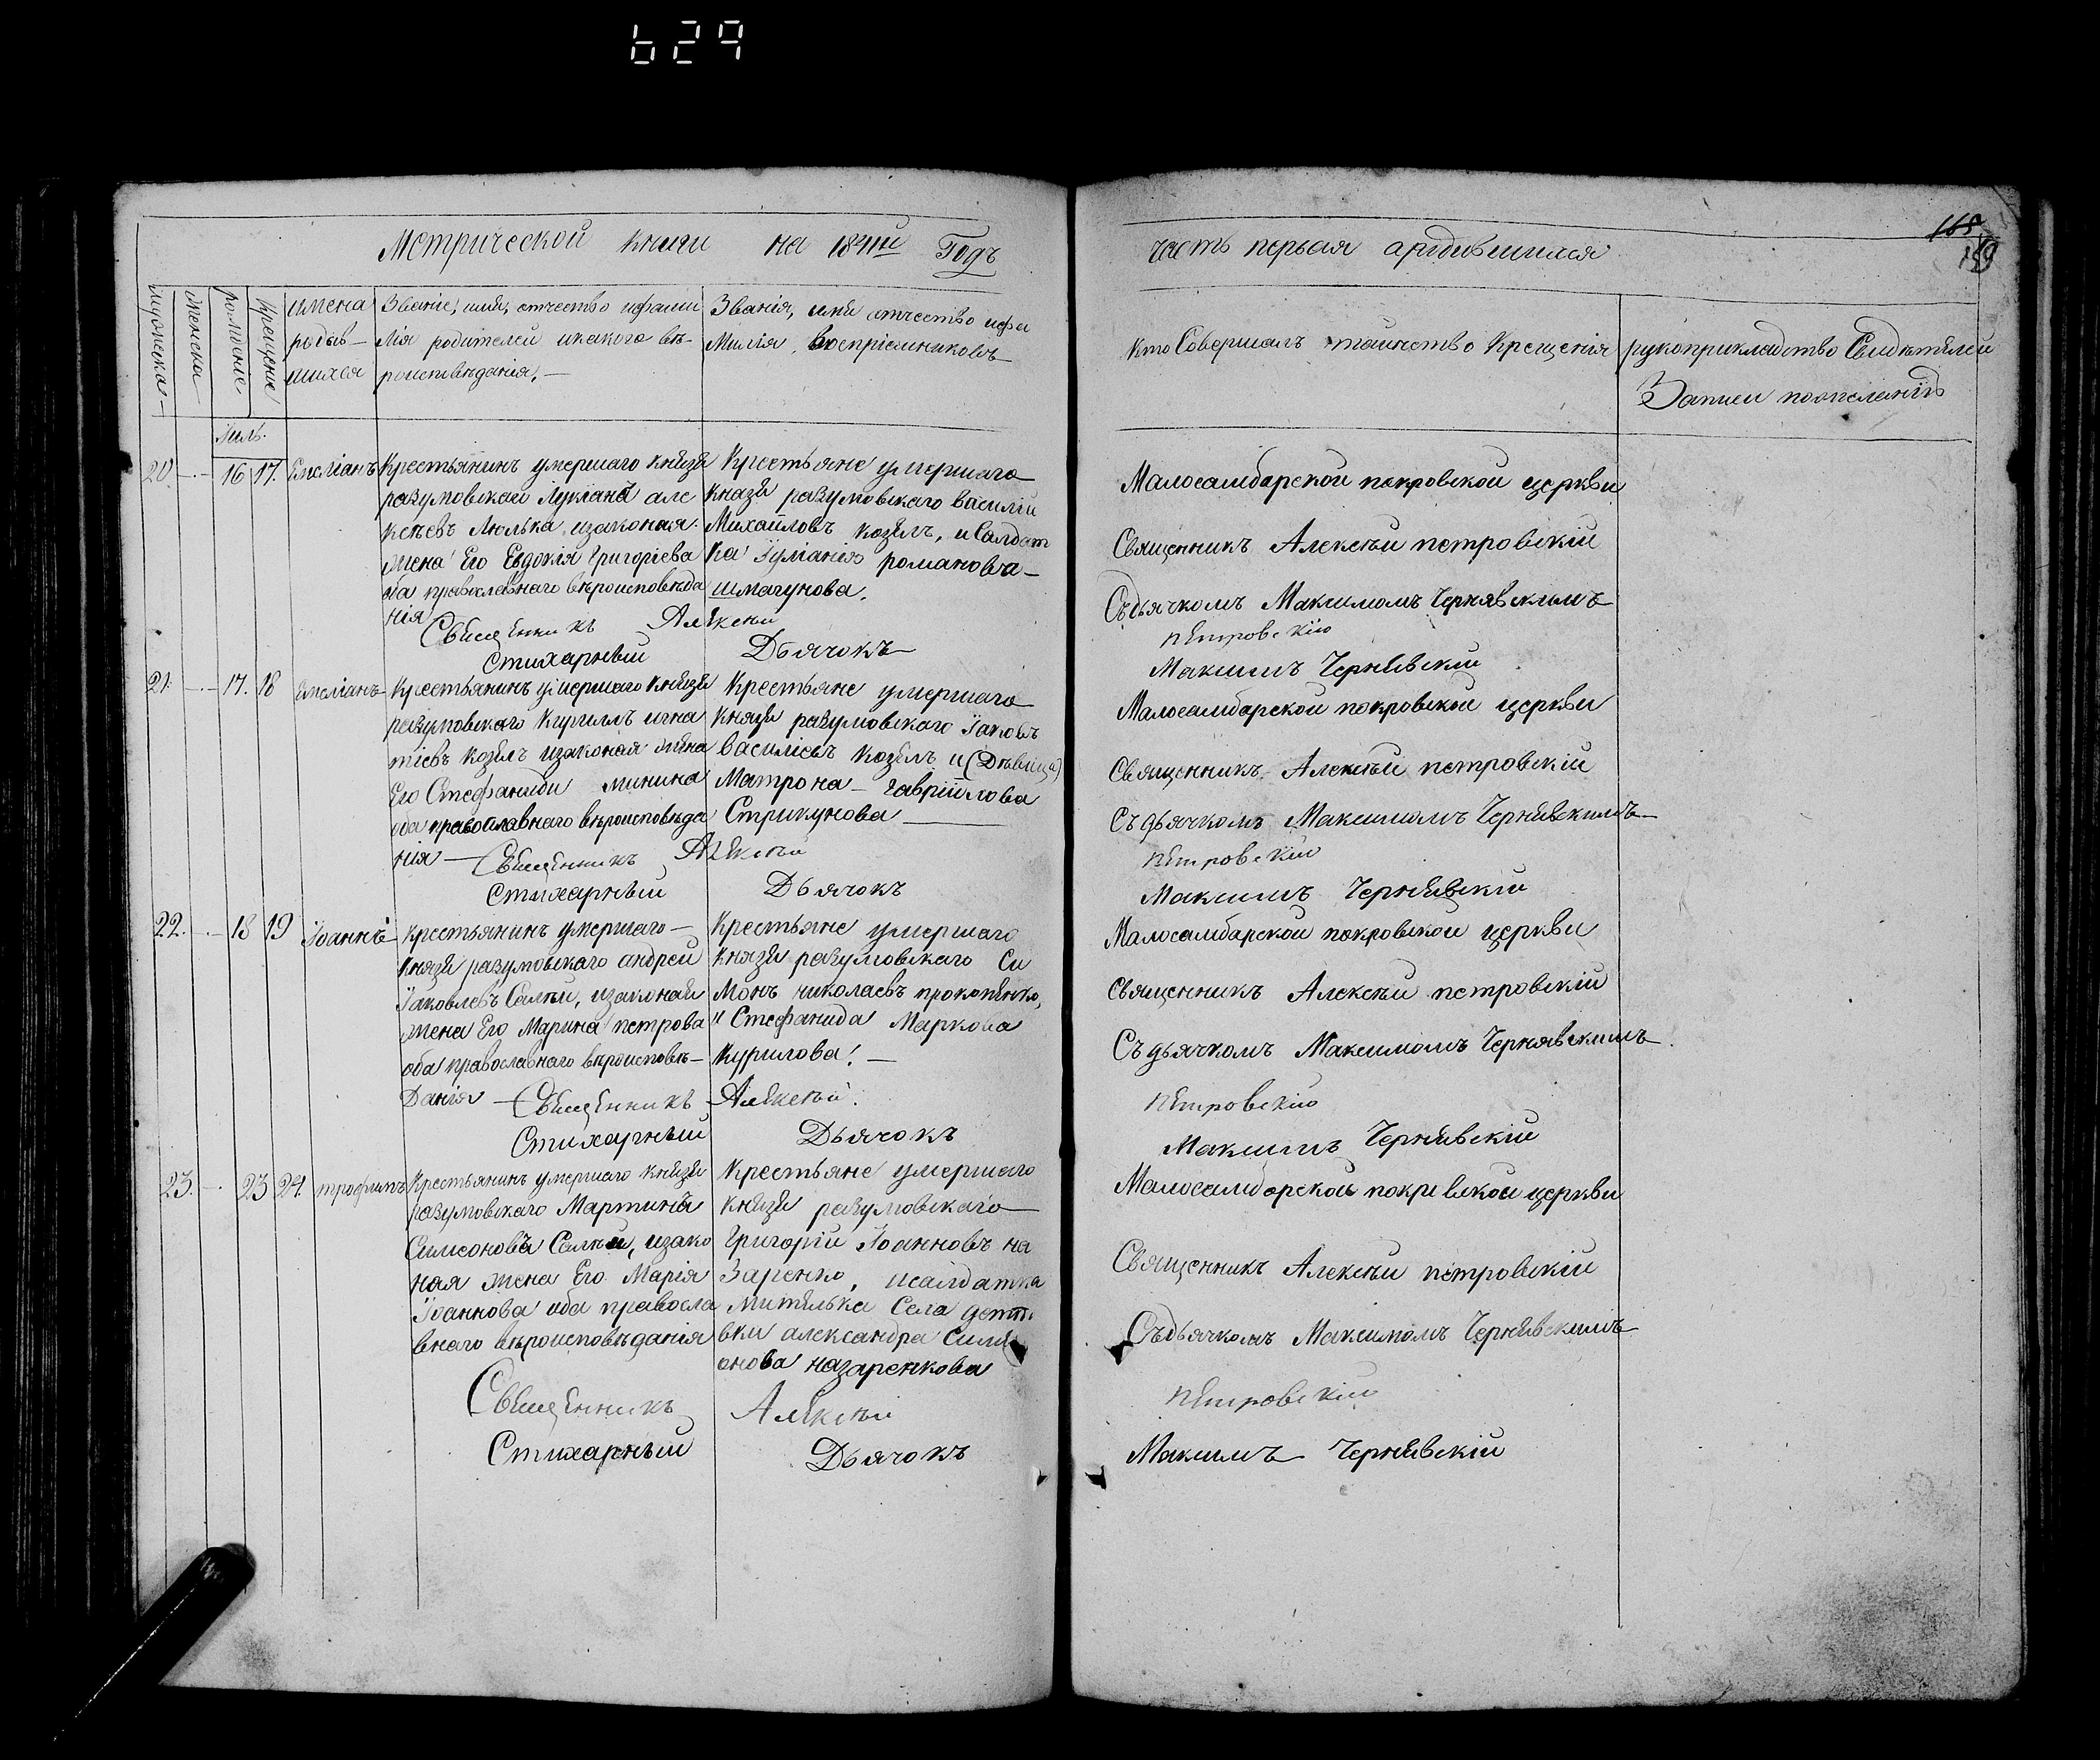 629
Метрической книги на 1841й Годъ
часть первая ародившихся
165
159
мужеска
женска
рожденіе
крещеніе
имена родыв-
шихся
Званіе, имя, отчество ифами
лія родителей икакого вѣ-
роисповѣданія.
Званія, имя отчество ифа
милія воспріемниковъ
кто Совершалъ таинство крещенія
рукоприкладство Свидѣтелей
Записи
Іюль.
20. 16 17. Емеліанъ
Крестьянинъ умершаго князя
разумовскаго Лукіанъ але
ксѣевъ Люлька, изаконая
жена Его Евдокія Григоріева
оба православнаго вѣроисповѣда
нія
Крестьяне умершаго
князя разумовскаго василій
Михайловъ козелъ, иСалдат
ка Іуліанія романова
шмагунова.
Малосамборской покровской церкви
Священникъ Алексѣй петровскій
Съдьячкомъ Максимомъ Чернявскимъ
Священникъ Алексѣй петровскій
Стихарный Дьячокъ Максимъ Чернявскій
21. 17. 18 Емеліанъ
Крестьянинъ умершаго князя
разумовскаго Кириллъ игна
тіевъ козелъ изаконая жена
Его Стефанида минина
оба православнаго вѣроисповѣда
нія
Крестьяне умершаго
князя разумовскаго Іаковъ
василіевъ козелъ и (Дѣвица)
Матрона Гавріилова
Стрикунова
Малосамборской покровской церкви
Священникъ Алексѣй петровскій
Съ дьячкомъ Максимомъ Чернявскимъ
Священникъ Алексѣй петровскій
Стихарный Дьячокъ Максимъ Чернявскій
22. 18 19 Іоаннъ
крестьянинъ умершаго
князя разумовскаго андрей
Іаковлевъ Салѣй, изаконая
жена Его Марина петрова
оба православнаго вѣроисповѣ-
данія
Крестьяне умершаго
князя разумовскаго Си
монъ николаевъ прокопенко,
и Стефанида Маркова
Курилова.
Малосамборской покровской церкви
священникъ Алексѣй петровскій
Съ дьячкомъ Максимомъ Чернявскимъ
Священникъ Алексѣй петровскій
Стихарный Дьячокъ Максимъ Чернявскій
23. 23 24. трофимъ
Крестьянинъ умершаго князя
разумовскаго Мартинъ
Симеоновъ Салѣй, изако
ная жена Его Марія
Іоаннова оба правосла
внаго вѣроисповѣданія
Крестьяне умершаго
князя разумовскаго
Григорій Іоанновъ на
заренко, исалдатка
Митилька Села
вки александра Симе
онова назаренкова
Малосамборской покровской церкви
Священникъ Алексѣй петровскій
Съдьячкомъ Максимомъ Чернявскимъ
Священникъ Алексѣй петровскій
Стихарный Дьячокъ Максимъ Чернявскій